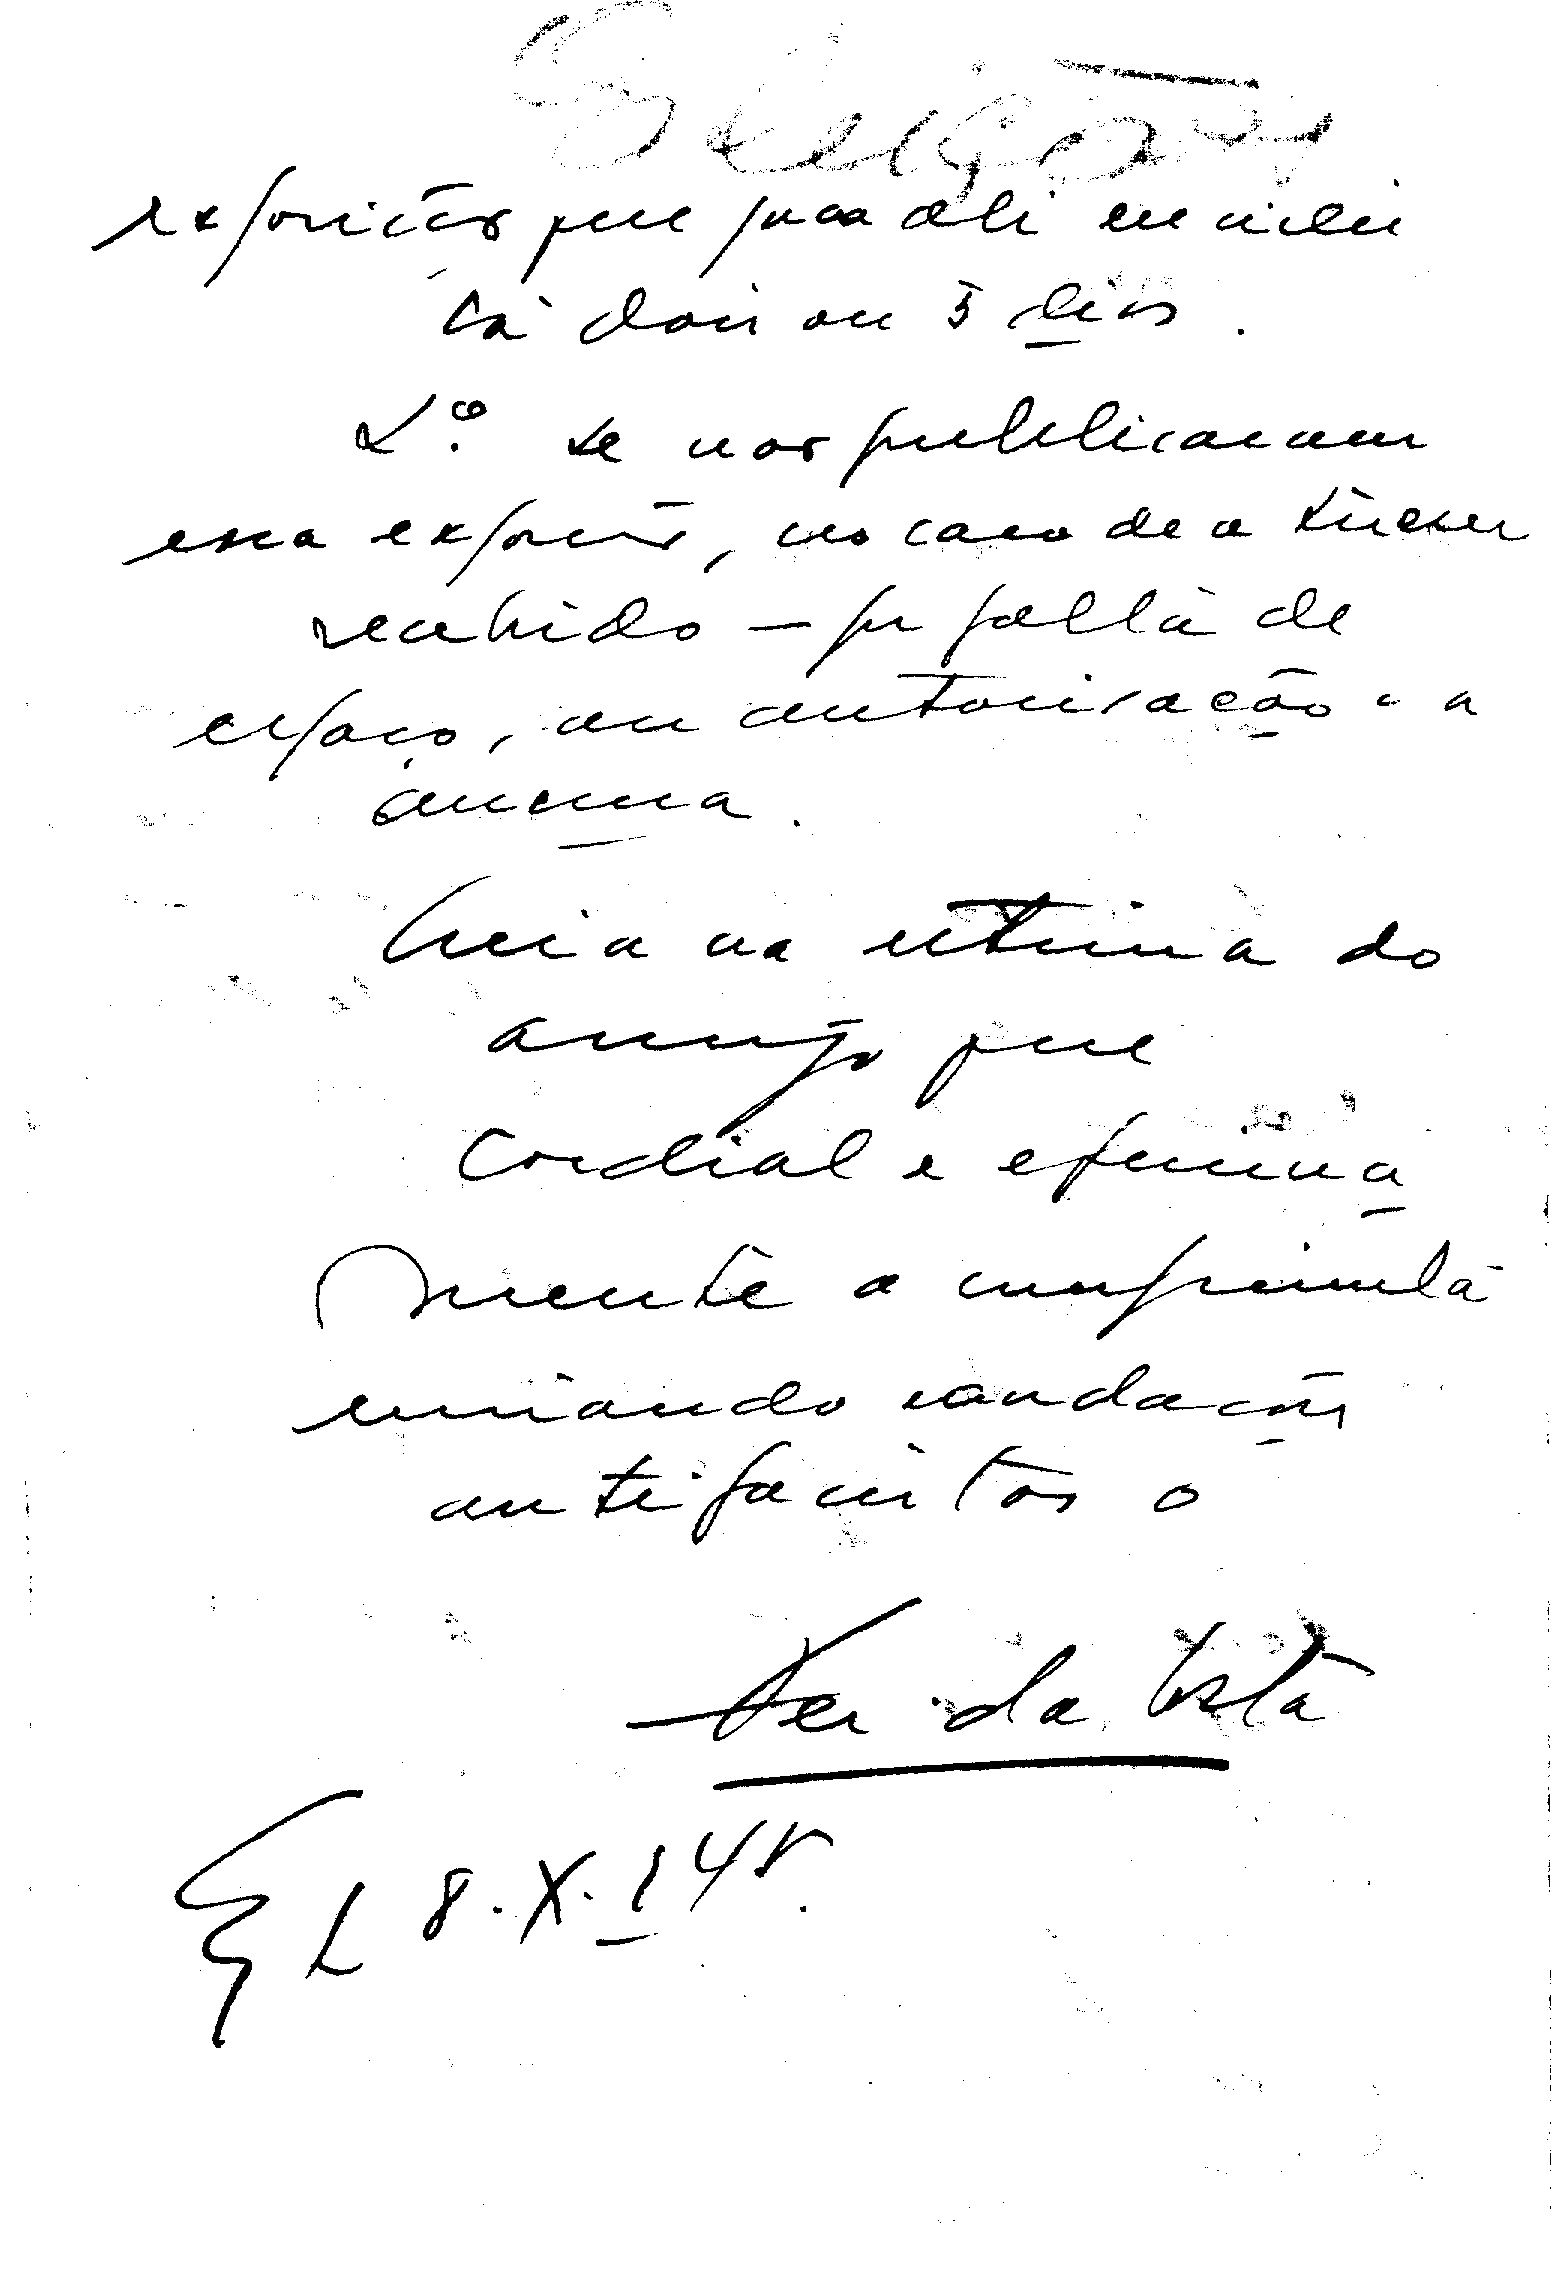 exposição que para ali enviei
há dois ou 3 dias.
2.º se não publicaram
essa exposição, no caso de a terem
recebido — por falta de
espaço, ou autorização
Creia na estima do
amigo que
cordial e efusiva
mente o cumprimenta
enviando saudações
antifascistas o
da
8.X.